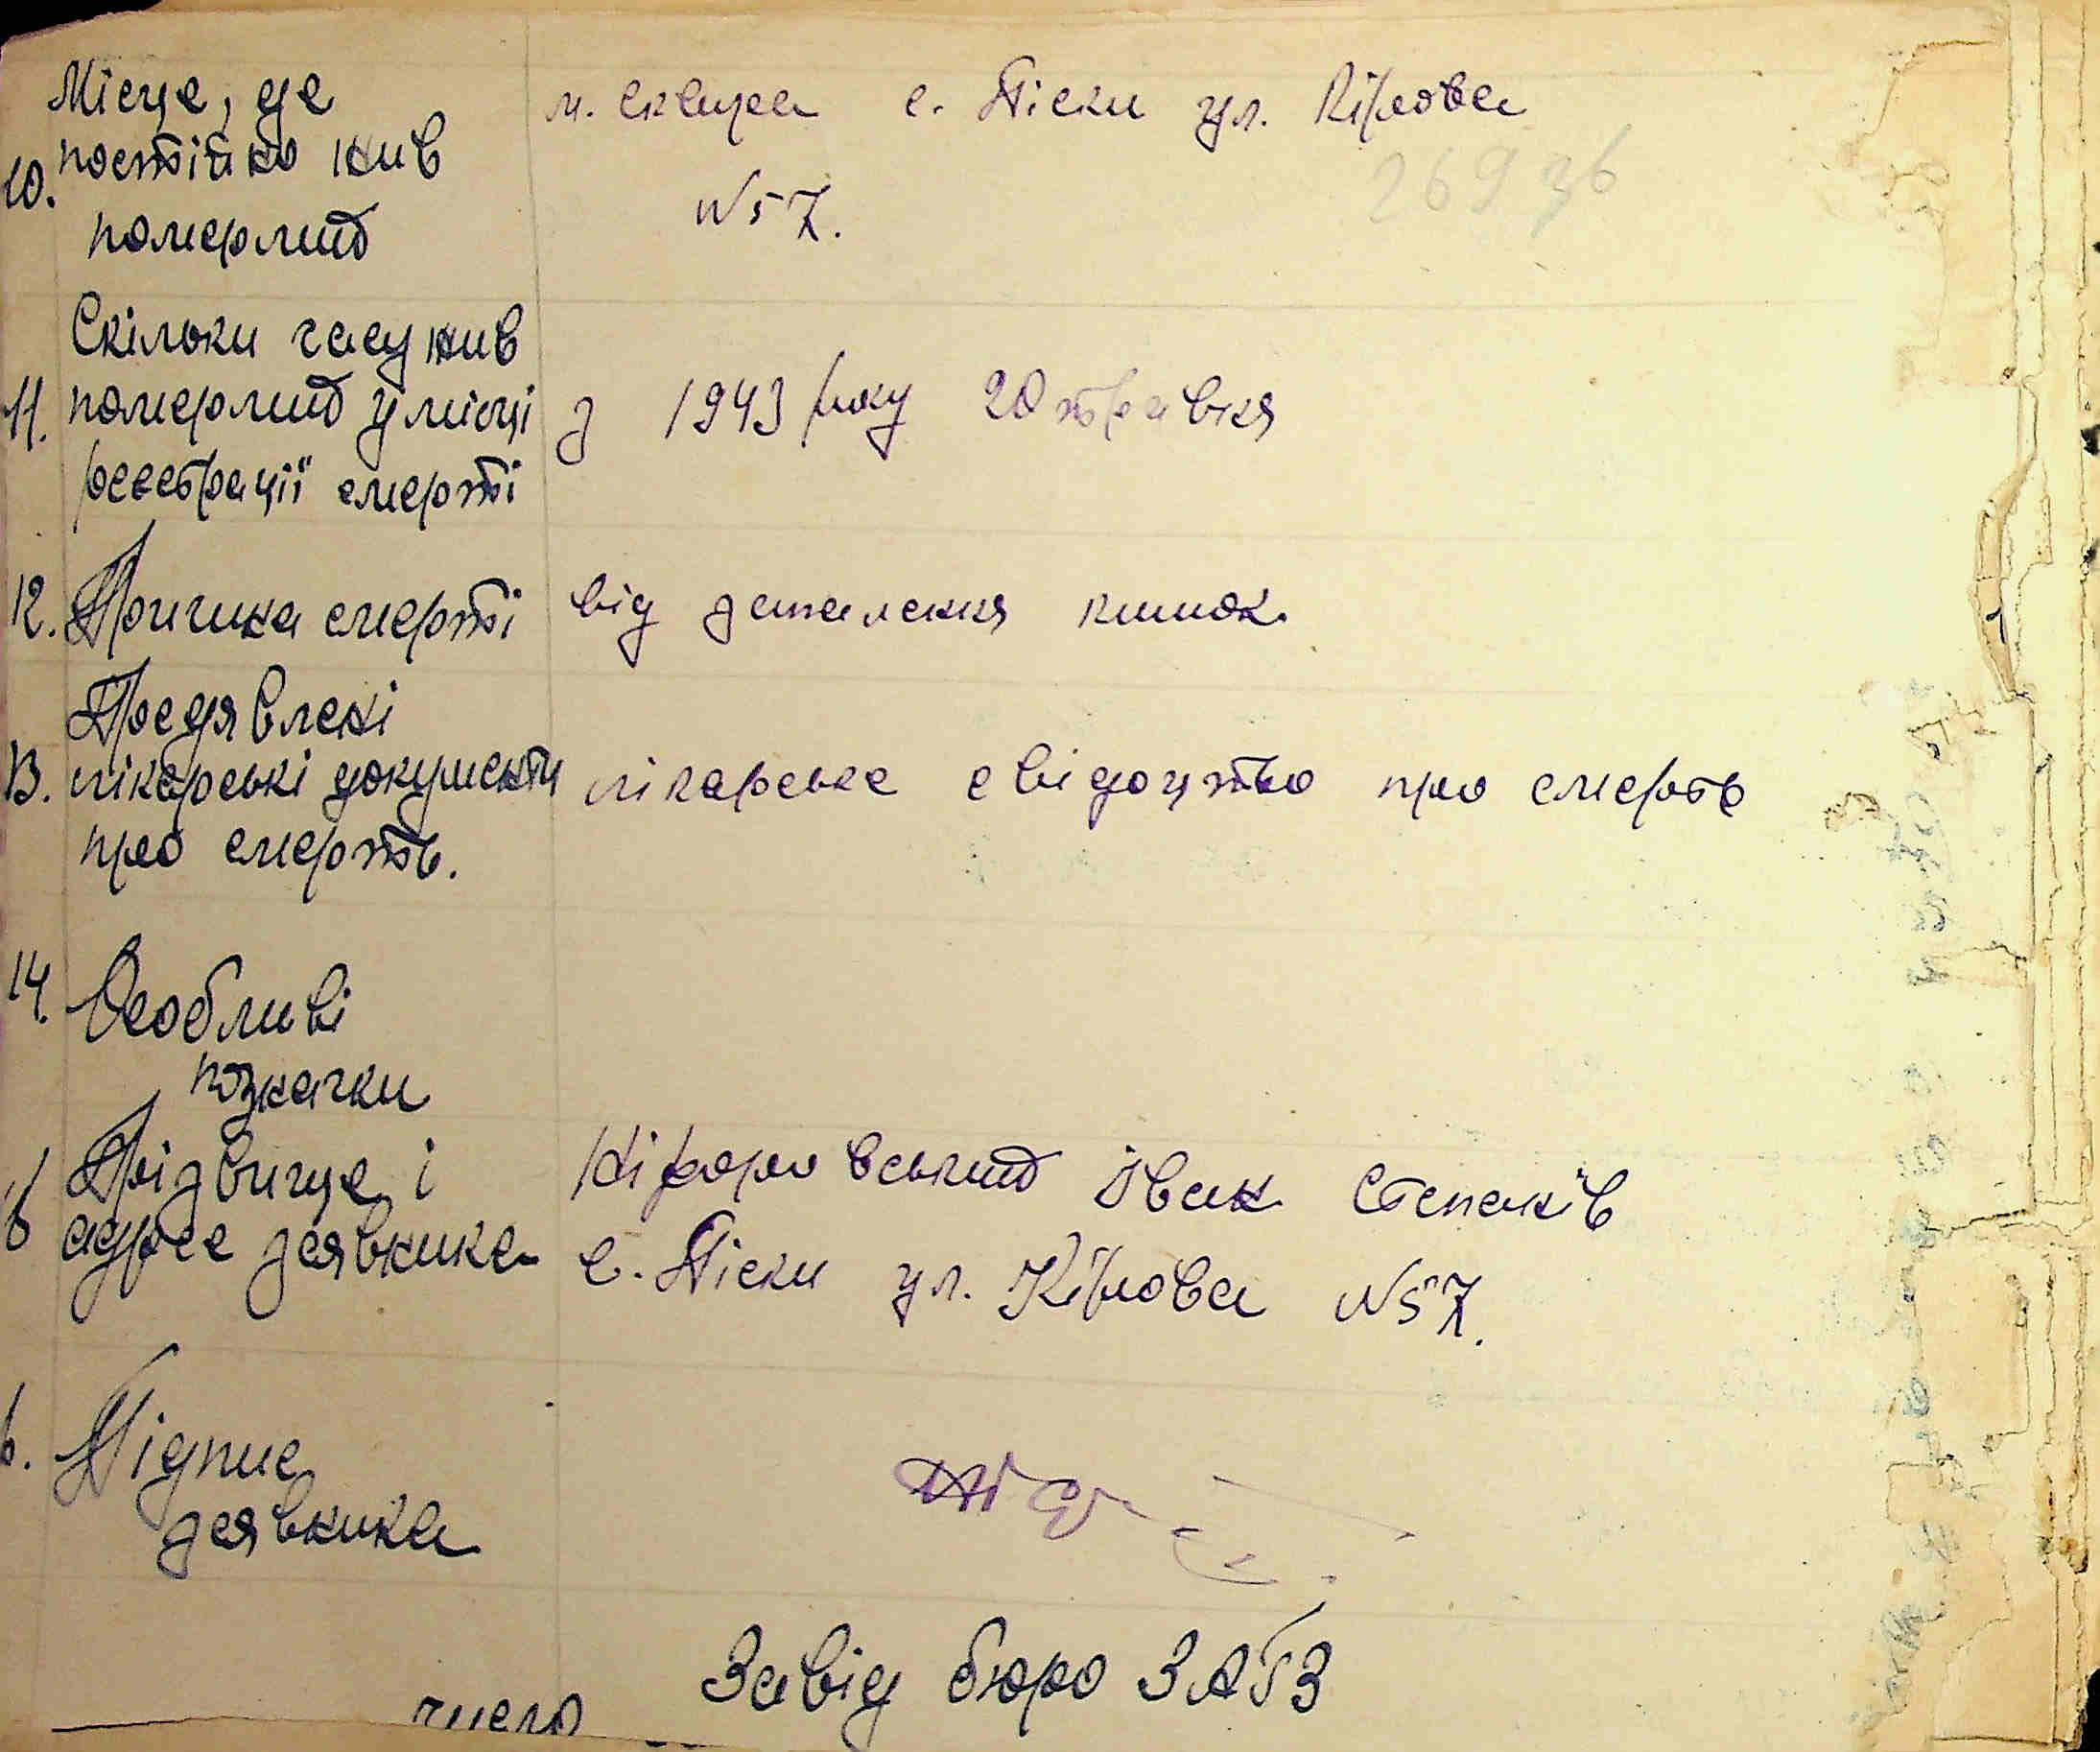 Місце, де
10. постійно жив
помержий
м. Сквира с. Піски ул. Кірова
№ 57.
26936
Скільки часу жив
11. помержий у місці
реєстрації смерті
з 1943 року 20 травня
12. Причина смерті
від запалення кишок.
Предявлені
13. лікарські документи
про смерть.
лікарське свідоцтво про смерть
14. Особливі
позначки
Прізвище і
адрес заявника
Нікфоровський Іван Степанів
с. Піски ул. Кірова № 57.
Підпис
заявника
Завід бюро ЗАГЗ
число